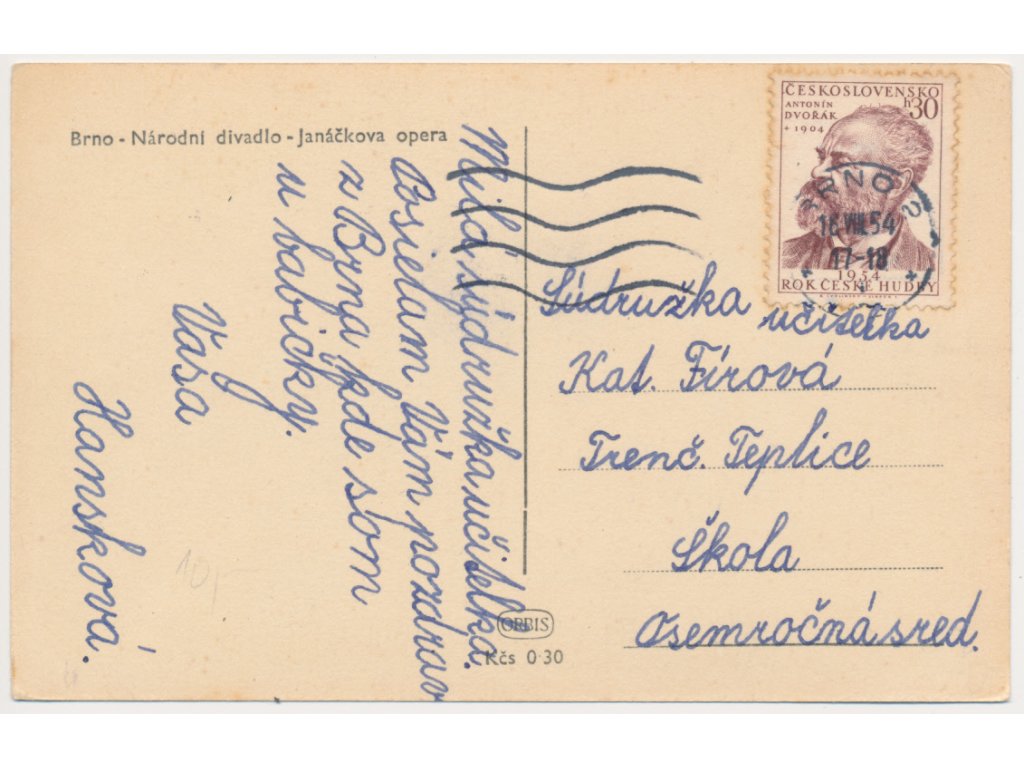 Brno - Národní divadlo - Janáčkova opera
Milá súdružka učitelka.
Posielam Vám pozdrav
z Brna kde som
u babičky.
Vaša
Hansková.
ČESKOSLOVENSKO
ANTONÍN
DVOŘÁK
+ 1904
h30
BRNO 2
16.VIII.54
17-18
1954
ROK ČESKÉ HUDBY
Súdružka
učitelka
Kat. Fírová
Trenč. Teplice
Škola
Osemročná sred.
ORBIS
Kčs 0·30